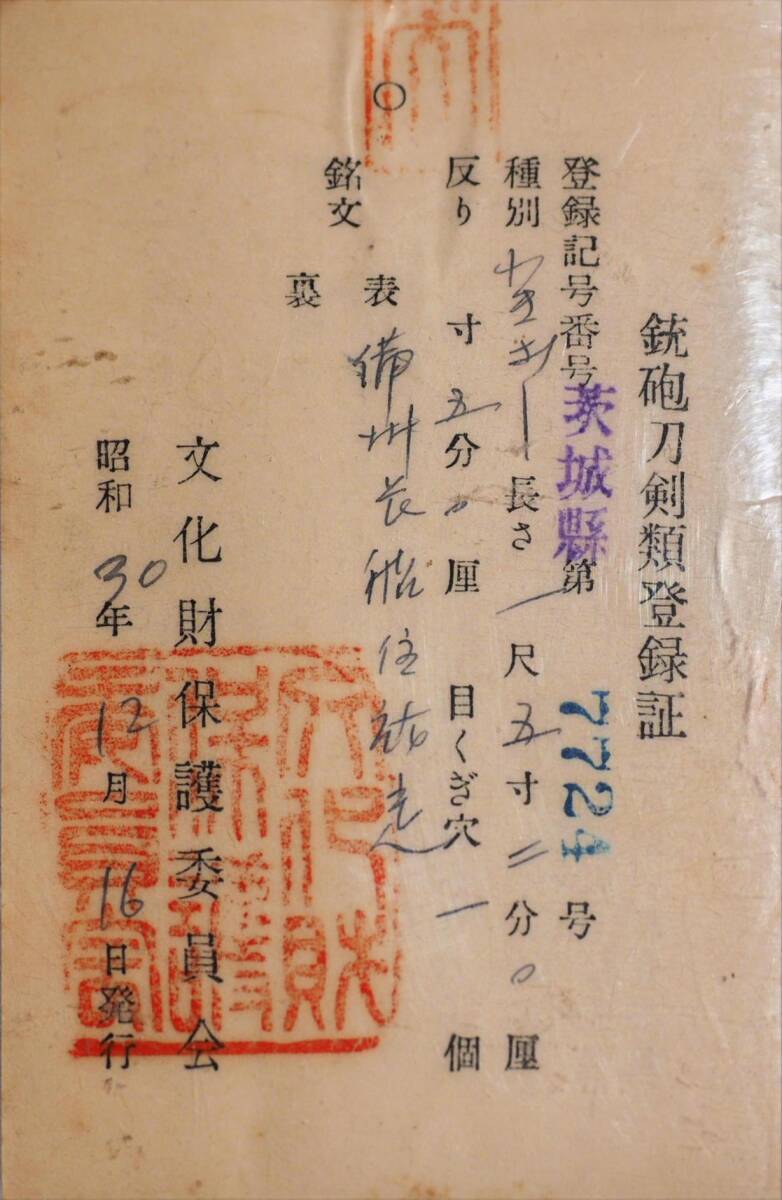 銃砲刀剣類登録証
登録記号番号 茨城縣 第 7724 号
種別 わきざし 長さ 一尺 五寸 二分 〇厘
反り 寸 五分 〇厘 目くぎ穴 一 個
銘文 表 備州长船住祐光
裏
文化財保護委員会
昭和 30年 12月 16日発行